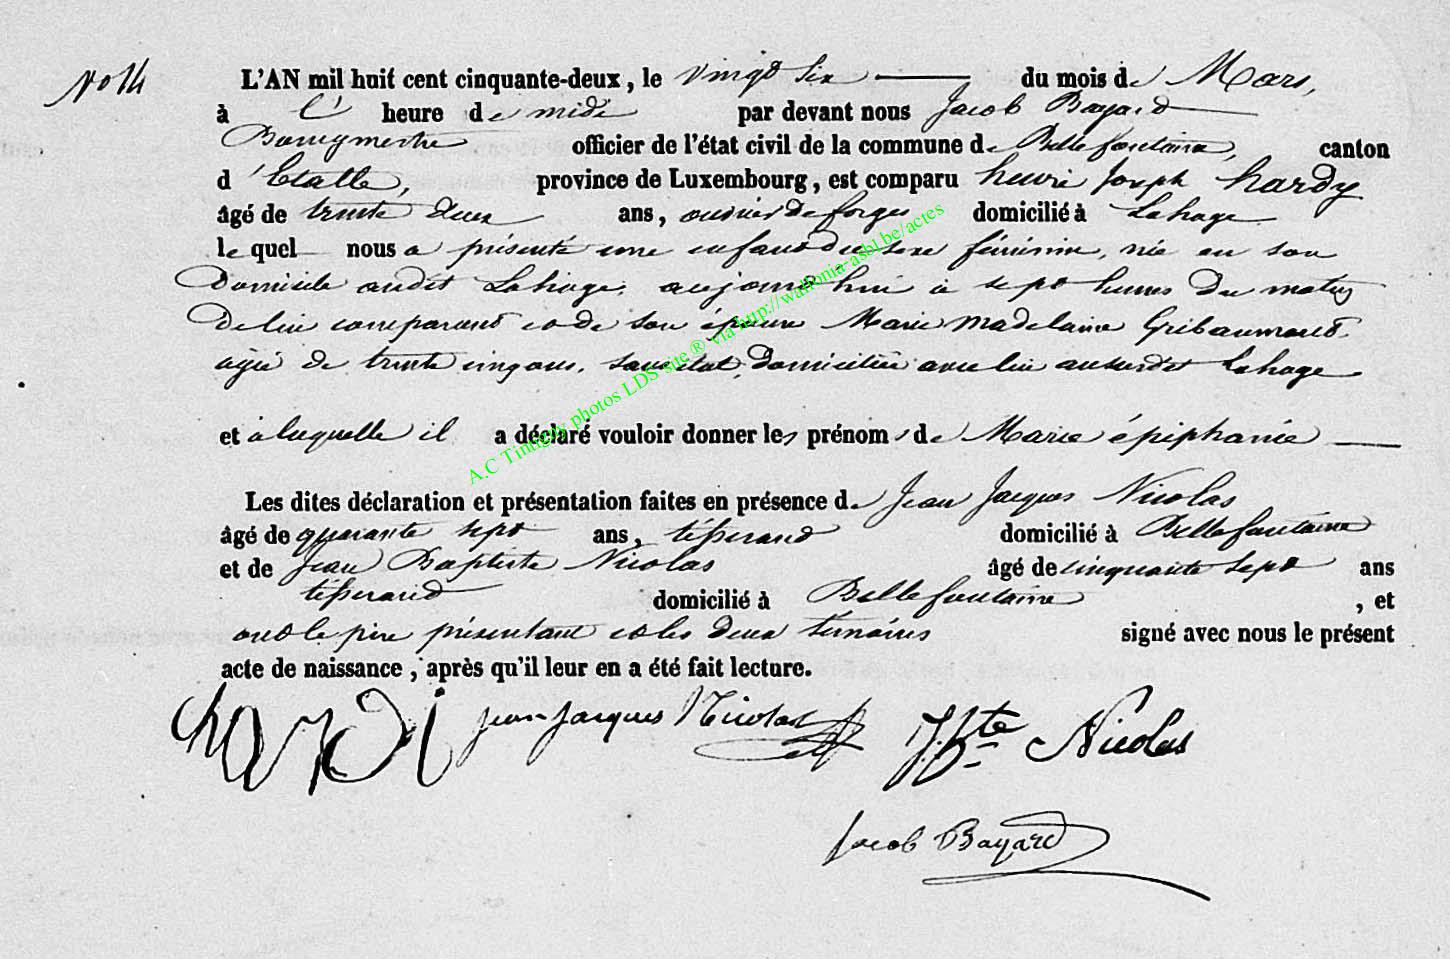 No 14
L'AN mil huit cent cinquante-deux, le vingt six du mois de Mars,
à l' heure de midi par devant nous Jacob Bayard
Bourgmestre officier de l'état civil de la commune de Bellefontaine, canton
d'Etalle, province de Luxembourg, est comparu henri Joseph hardy
âgé de trente deux ans, ouvrier de forges domicilié à Lahage
le quel nous a présenté une enfant du sexe féminin, née en son
Domicile audit Lahage, aujourd'hui à sept heures du matin
De lui comparant et de son épouse Marie Madelaine Gribaumont
agée de trente cinq ans, sans état, domiciliée avec lui au susdit Lahage
et à laquelle il a déclaré vouloir donner les prénoms de Marie épiphanie
Les dites déclaration et présentation faites en présence de Jean Jacques Nicolas
âgé de quarante sept ans, tisserand domicilié à Bellefontaine
et de Jean Baptiste Nicolas âgé de cinquante sept ans
tisserand domicilié à Bellefontaine, et
ont le père présentant et les deux témoins signé avec nous le présent
acte de naissance, après qu'il leur en a été fait lecture.
hardi Jean Jacques Nicolas J. Bte Nicolas
Jacob Bayard
A.C Tintigny photos LDS site ® via http://wallonia-asbl.be/actes